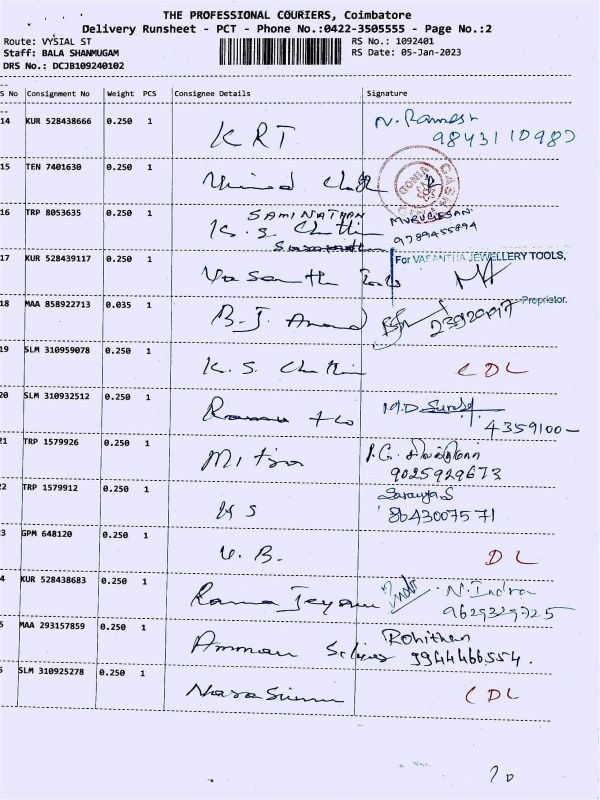 THE PROFESSIONAL COURIERS, Coimbatore
Delivery Runsheet - PCT - Phone No.:0422-3505555 - Page No.:2
Route: VYSIAL ST RS No.: 1092401
Staff: BALA SHANMUGAM RS Date: 05-Jan-2023
DRS No.: DCJB109240102
S No Consignment No Weight PCS Consignee Details Signature
14 KUR 528438666 0.250 1 KRT N. Ramesh
9843110980
15 TEN 7401630 0.250 1
16 TRP 8053635 0.250 1 SAMINATHAN
K. S. MURUGESAN
9789455894
17 KUR 528439117 0.250 1 Vasantha Tools For VASANTHA JEWELLERY TOOLS,
Proprietor.
18 MAA 858922713 0.035 1 B. J. Anand
19 SLM 310959078 0.250 1 K. S. CDL
20 SLM 310932512 0.250 1 M.D. Suresh
4359100-
21 TRP 1579926 0.250 1 Mitra
9025929673
22 TRP 1579912 0.250 1 Saranya S
8643007571
3 GPM 648120 0.250 1 V. B. DL
4 KUR 528438683 0.250 1 Rama Jeyam N. Indra
9629329725
5 MAA 293157859 0.250 1 Amman Rohithan
9944466554.
5 SLM 310925278 0.250 1 CDL